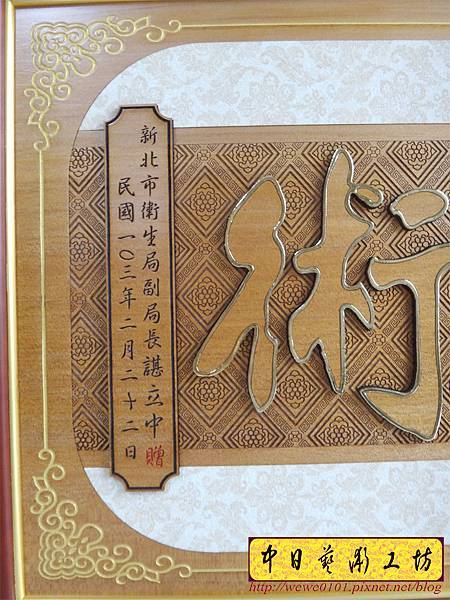 術
新北市衛生局副局長諶立中
贈
民國一〇三年二月二十二日
中日藝術工坊
http://wewe0101.pixnet.net/blog